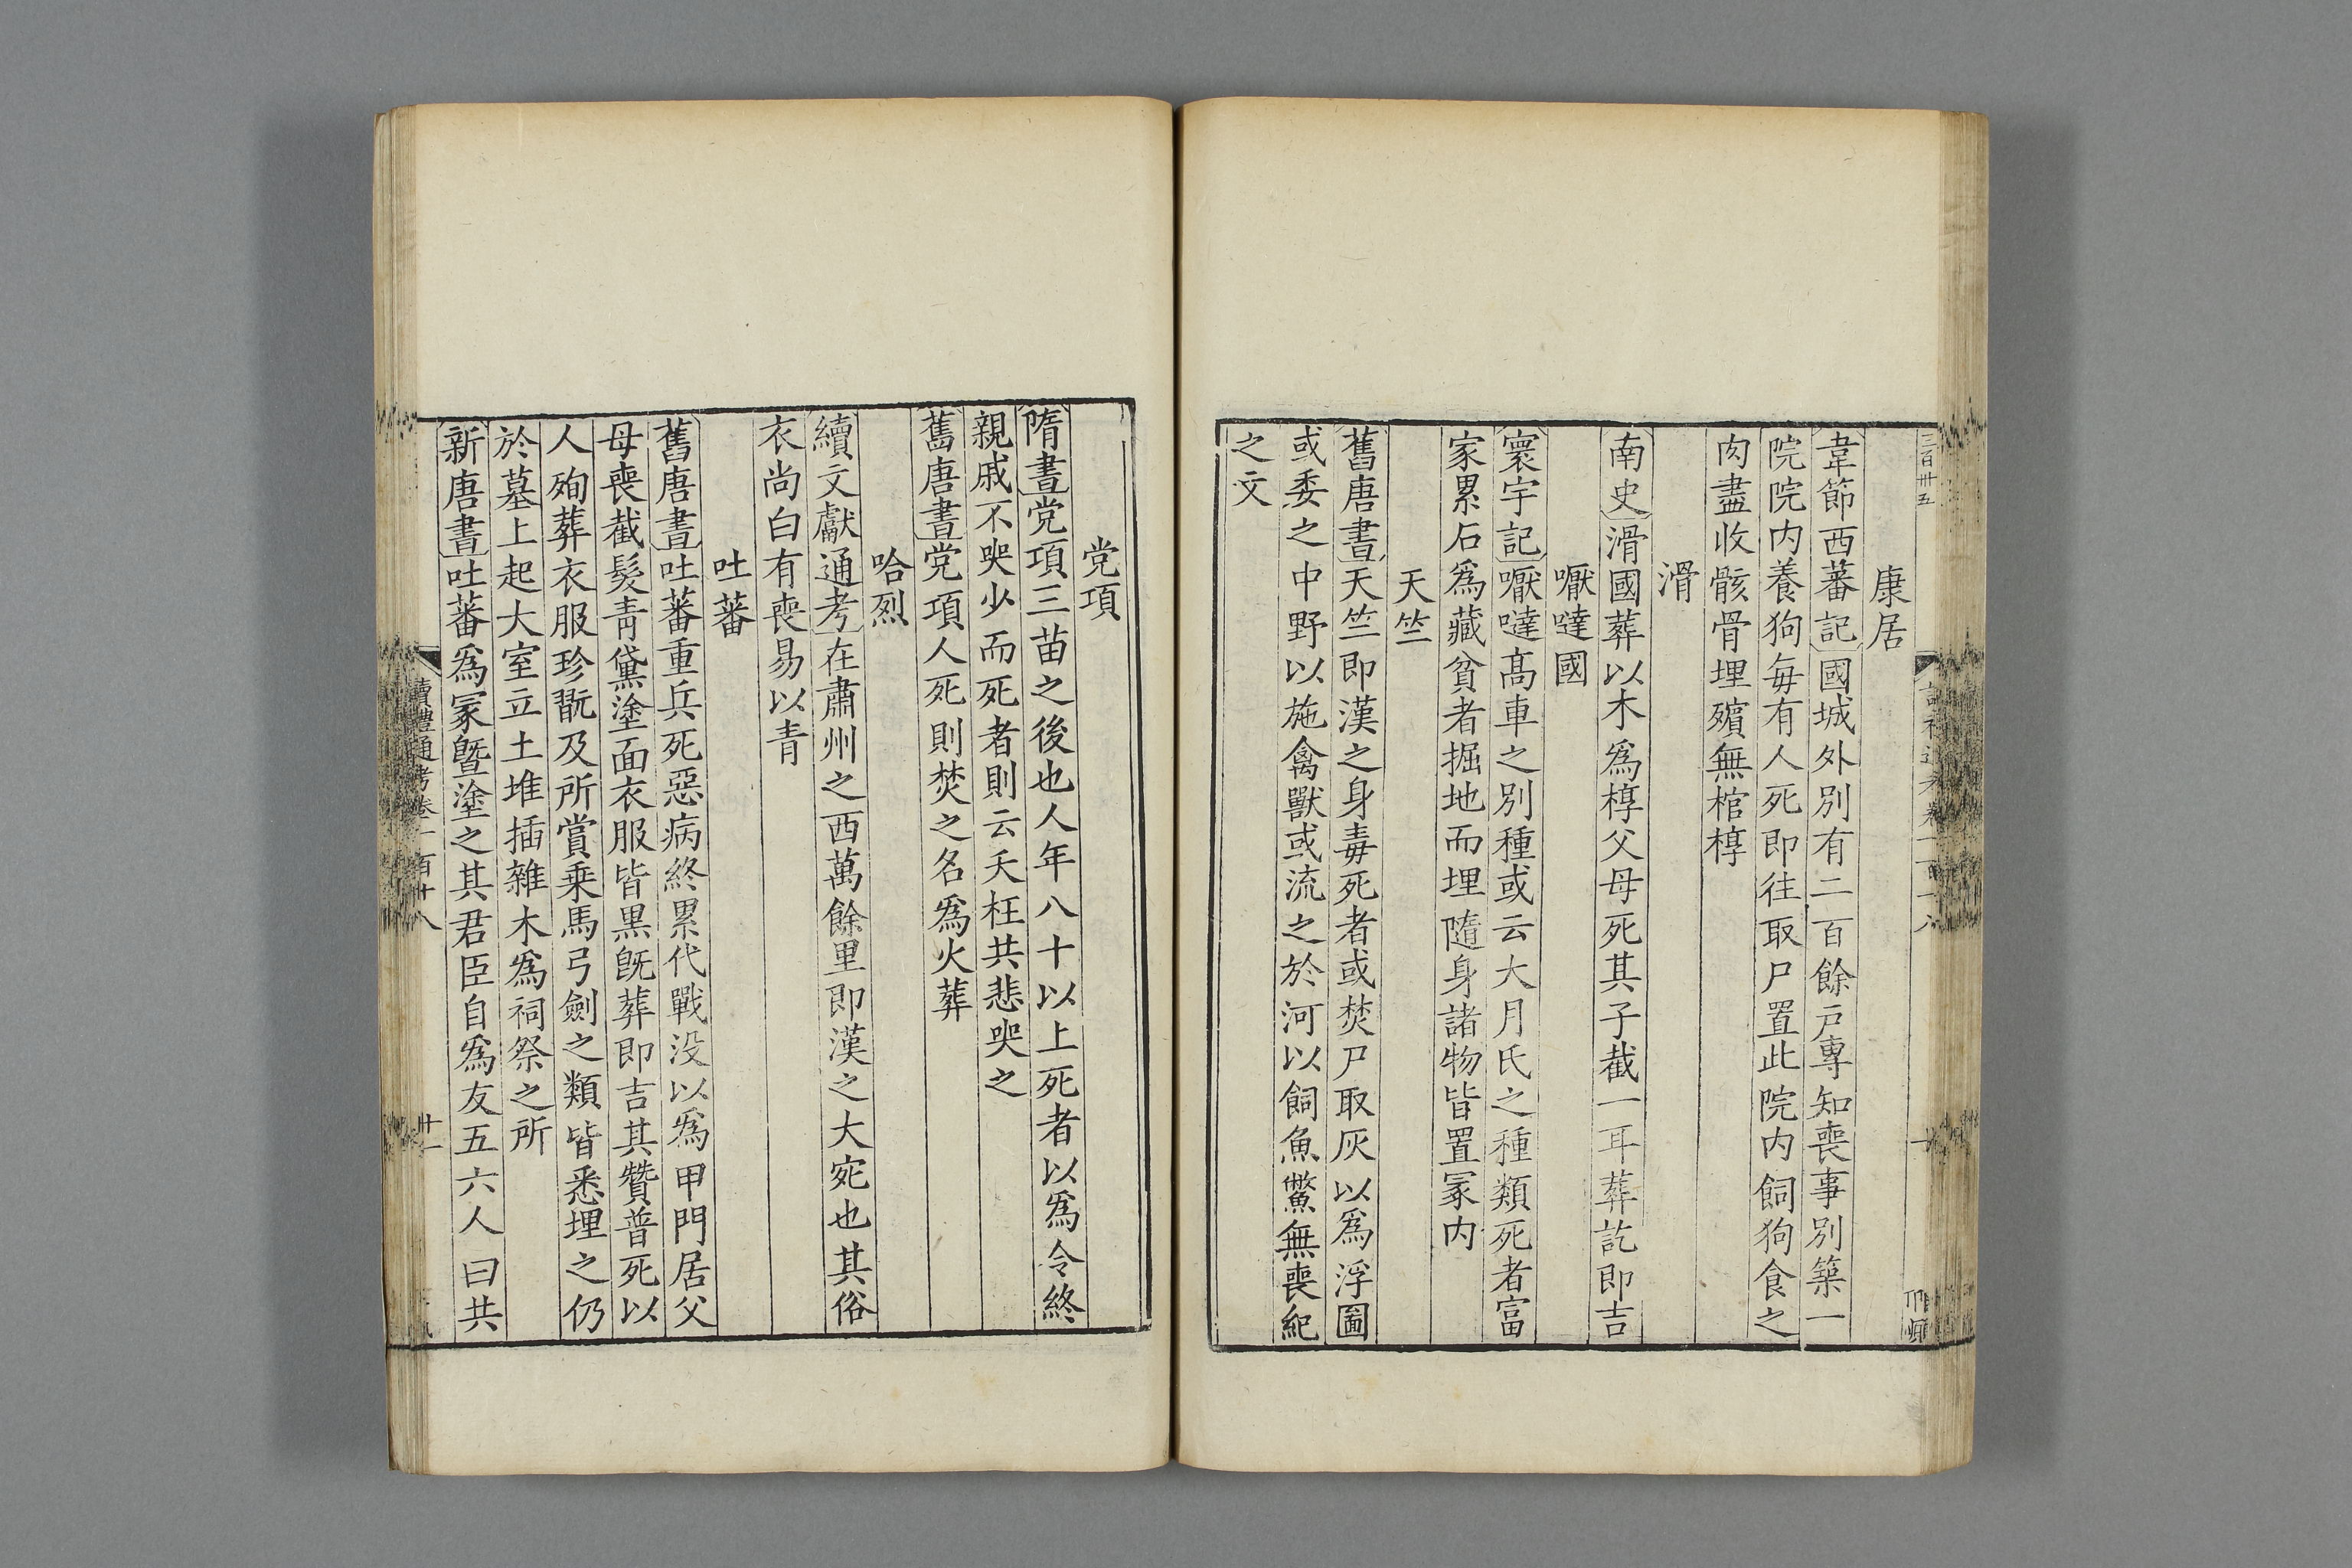 三百卅五
康居
韋節西蕃記國城外別有二百餘戶專知喪事別築一
院院內養狗每有人死即往取尸置此院內飼狗食之
肉盡收骸骨埋殯無棺椁
滑
南史滑國葬以木爲椁父母死其子截一耳葬訖即吉
嚈噠國
寰宇記嚈噠髙車之別種或云大月氏之種類死者富
家累石爲藏貧者掘地而埋隨身諸物皆置冢内
天竺
舊唐書天竺即漢之身毒死者或焚尸取灰以爲浮圖
或委之中野以施禽獸或流之於河以飼魚鱉無喪紀
之文
党項
隋書党項三苗之後也人年八十以上死者以爲令終
親戚不哭少而死者則云夭枉共悲哭之
舊唐書党項人死則焚之名爲火葬
哈烈
續文獻通考在肅州之西萬餘里即漢之大宛也其俗
衣尚白有喪易以青
吐蕃
舊唐書吐蕃重兵死惡病終累代戰没以爲甲門居父
母喪截髮青黛塗面衣服皆黒既葬即吉其贊普死以
人殉葬衣服珍翫及所賞乗馬弓劍之類皆悉埋之仍
於墓上起大室立土堆插雜木爲祠祭之所
新唐書吐蕃爲冢塈塗之其君臣自爲友五六人曰共
讀禮通考卷一百十八
廿一